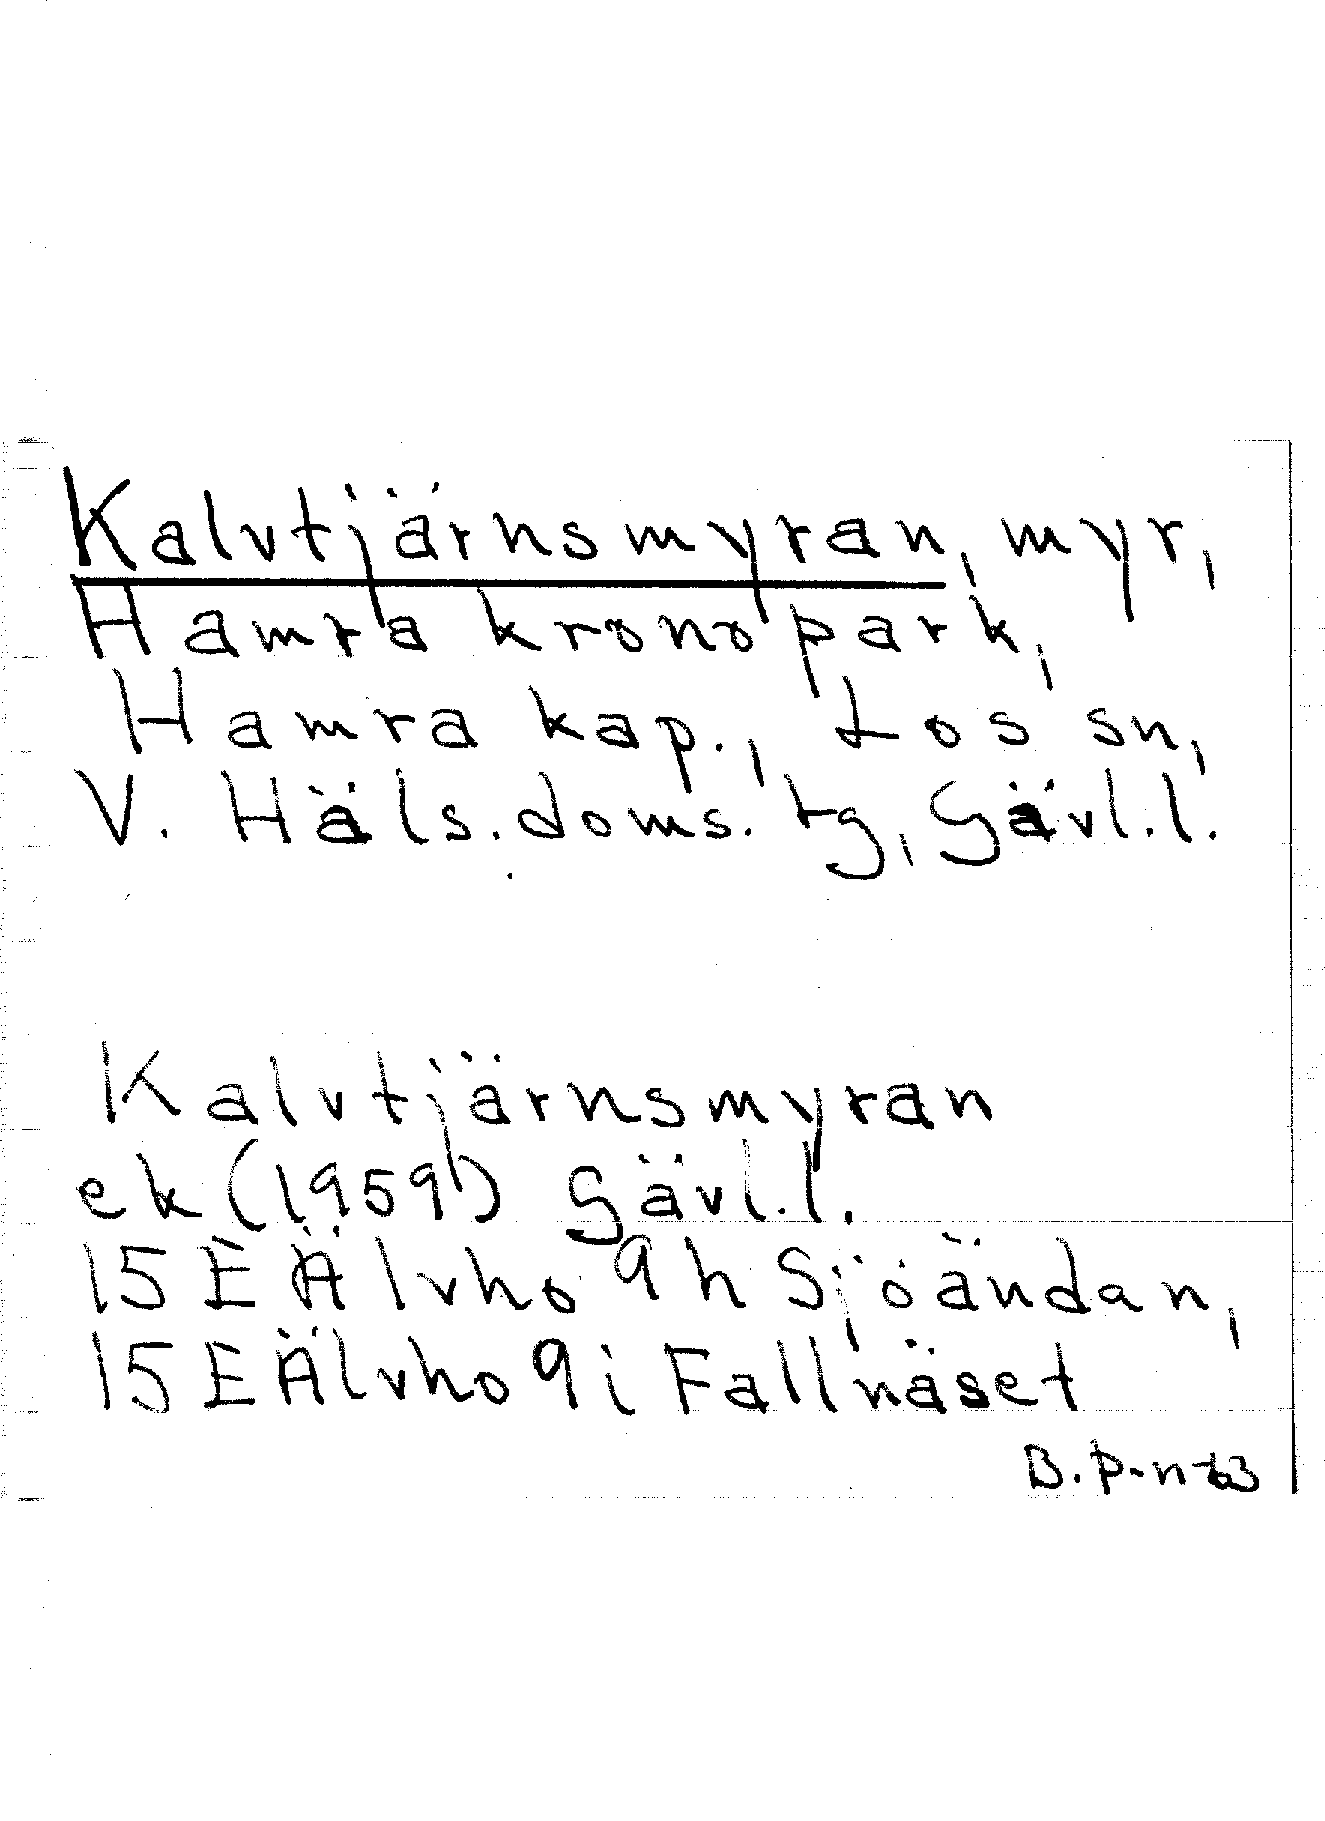 Kalvtjärnsmyran, myr,
Hamra kronopark,
Hamra kap., Los sn,
V. Häls. doms. tg, Gävl.l.
Kalvtjärnsmyran
ek (1959) Gävl.l.
15 E Älvho 9 h Sjöändan,
15 E Älvho 9 i Fallnäset
B. P-n